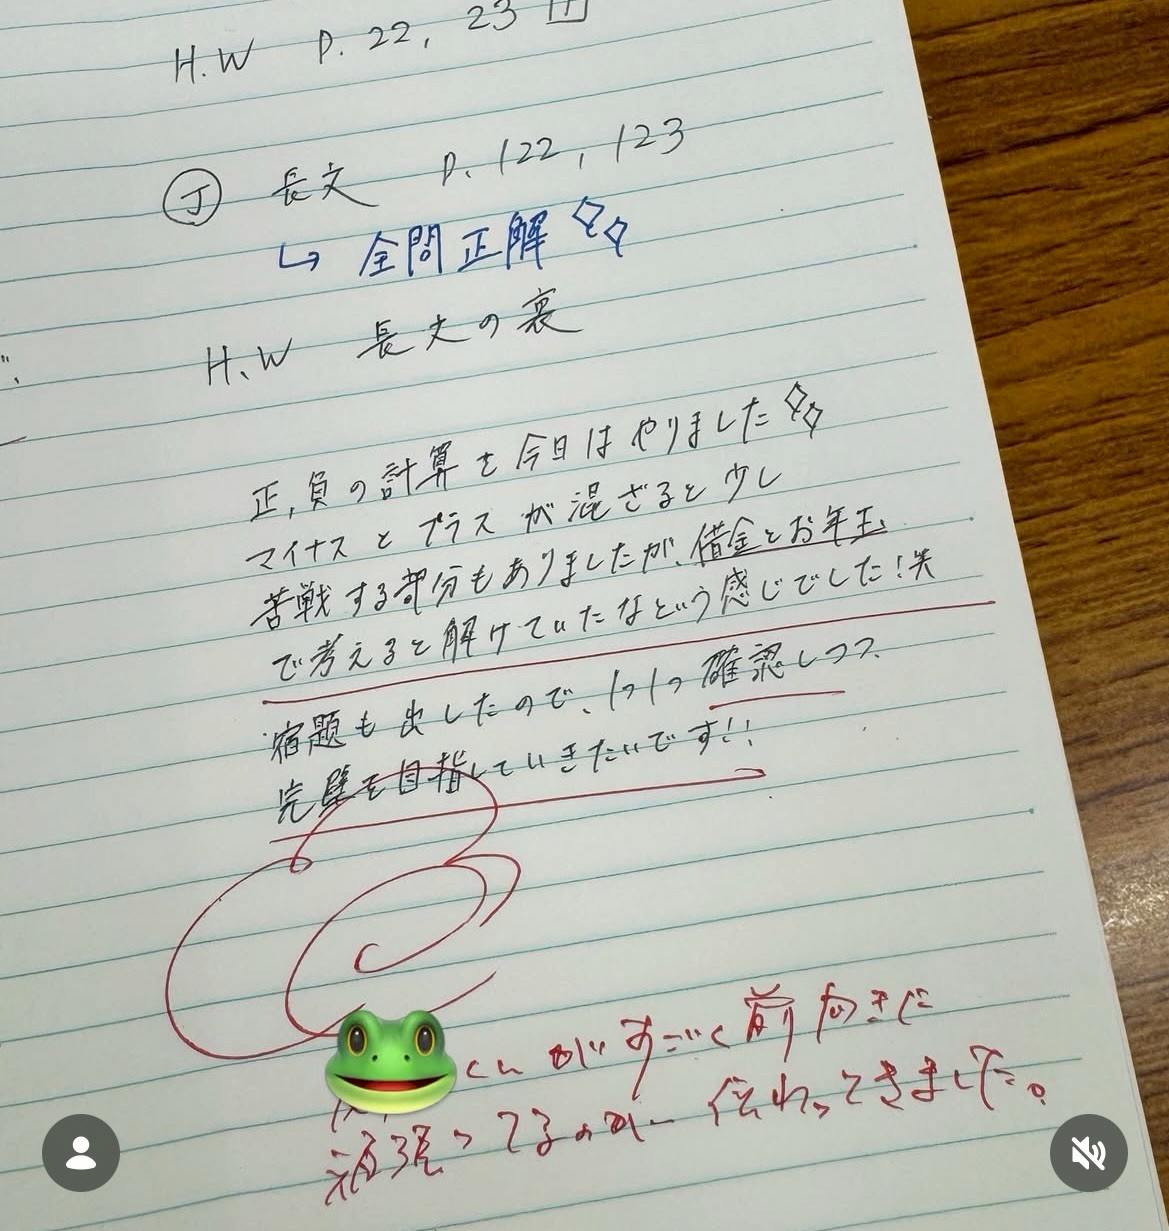 H.W P. 22, 23
J 長文 P. 122, 123
↳ 全問正解
H.W 長文の裏
正,負の計算を今日はやりました
マイナスとプラスが混ざると少し
苦戦する部分もありましたが、借金とお年玉
で考えると解けていたなという感じでした!笑
宿題も出したので、1つ1つ確認しつつ、
完璧を目指していきたいです!!
くんがすごく前向きに
頑張ってるのが伝わってきました。